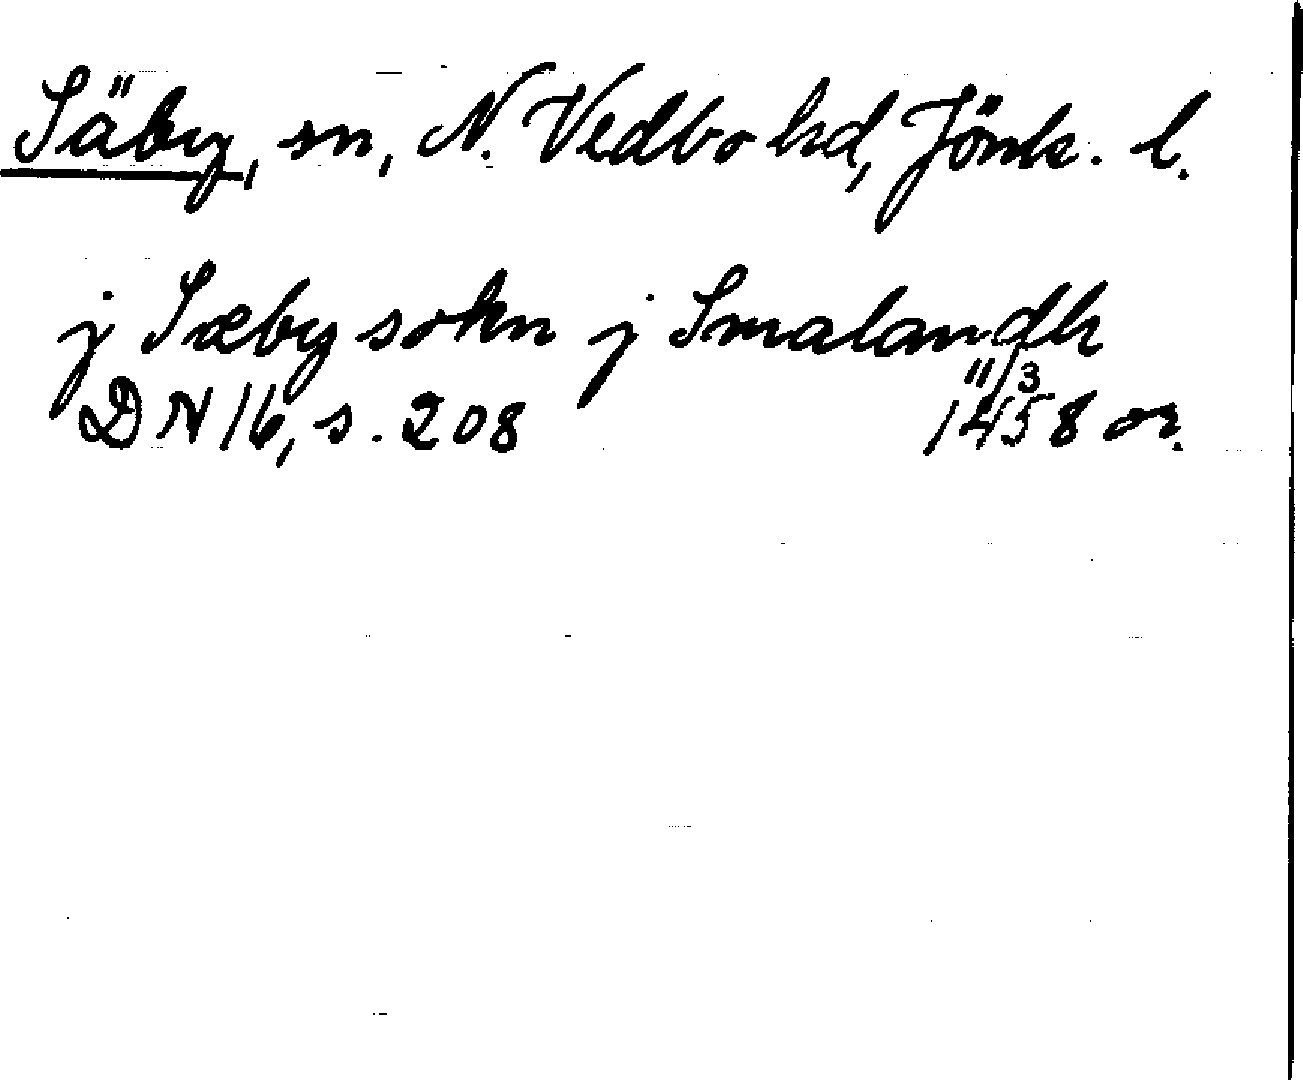 Säby, sn, N. Vedbo hd, Jönk. l.
j Sæby sokn j Smalandh
11/3
DN 16, s. 208 1458 or.